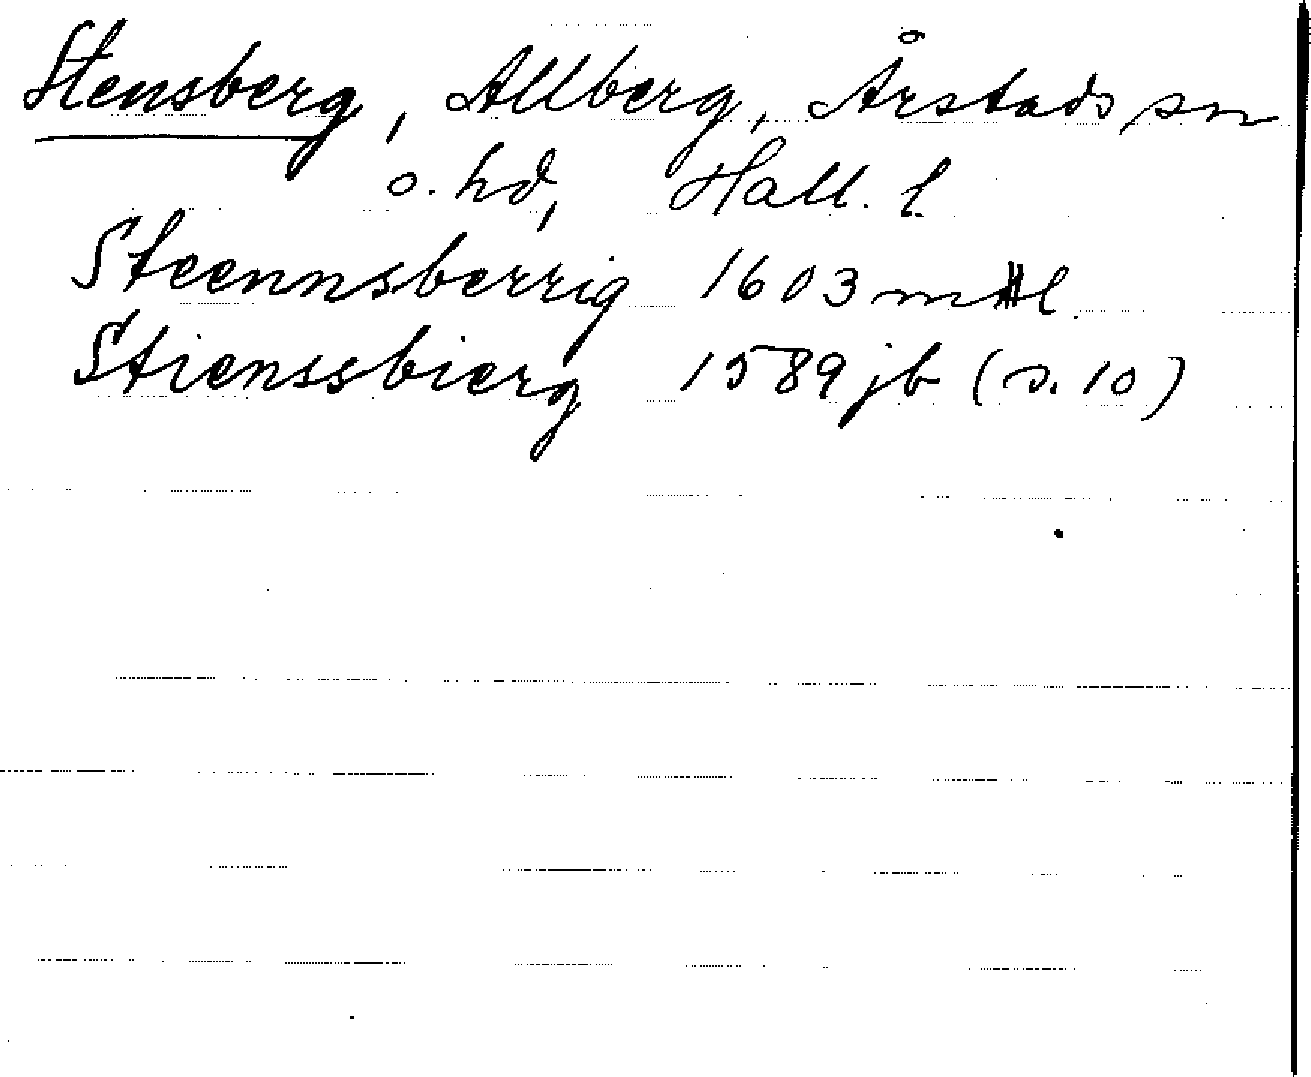 Stensberg, Allberg, Årstads sn
o. hd, Hall. l.
Steennsberrig 1603 mtl
Stienssbierg 1589 jb (s. 10)